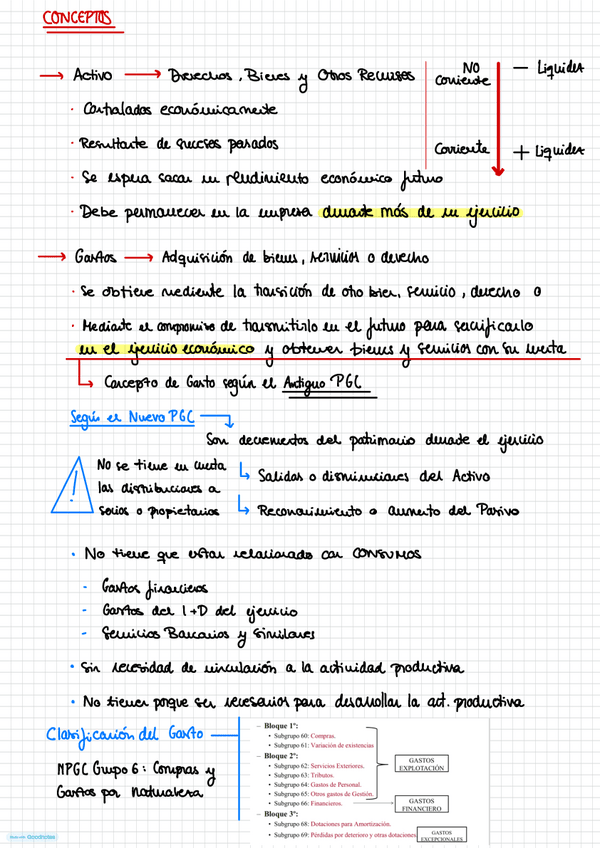 CONCEPTOS
→ Activo → Derechos, Bienes y Otros Recursos
NO corriente
- Liquidez
· Controlados económicamente
· Resultante de sucesos pasados
Corriente
+ Liquidez
· Se espera sacar un rendimiento económico futuro
· Debe permanecer en la empresa durante más de un ejercicio
→ Gastos → Adquisición de bienes, servicios o derecho
· Se obtiene mediante la transición de otro bien, servicio, derecho o
· Mediante el compromiso de transmitirlo en el futuro para sacrificarlo
en el ejercicio económico y obtener bienes y servicios con su venta
Concepto de Gasto según el Antiguo PGC
Según el Nuevo PGC
Son decrementos del patrimonio durante el ejercicio
!
No se tiene en cuenta
las distribuciones a
socios o propietarios
Salidas o disminuciones del Activo
Reconocimiento o aumento del Pasivo
· No tiene que estar relacionado con CONSUMOS
- Gastos financieros
- Gastos del I+D del ejercicio
- Servicios Bancarios y similares
· Sin necesidad de vinculación a la actividad productiva
· No tienen porque ser necesarios para desarrollar la act. productiva
Clasificación del Gasto
NPGC Grupo 6: Compras y
Gastos por Naturaleza
– Bloque 1º:
• Subgrupo 60: Compras.
• Subgrupo 61: Variación de existencias
– Bloque 2º:
• Subgrupo 62: Servicios Exteriores.
• Subgrupo 63: Tributos
• Subgrupo 64: Gastos de Personal.
• Subgrupo 65: Otros gastos de Gestión.
• Subgrupo 66: Financieros.
– Bloque 3º:
• Subgrupo 68: Dotaciones para Amortización.
• Subgrupo 69: Pérdidas por deterioro y otras dotaciones
GASTOS
EXPLOTACIÓN
GASTOS
FINANCIERO
GASTOS
EXCEPCIONALES
Made with Goodnotes